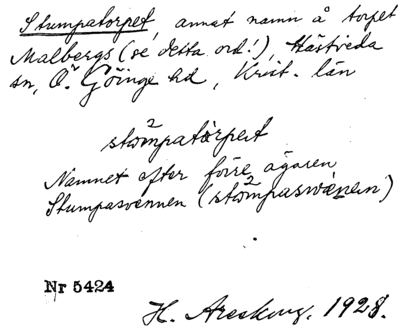 Stumpatorpet, annat namn å torpet
Malbergs (se detta ord!), Hästveda
sn, Ö. Göinge hd, Krist. län
2
stómpatàrpert
Namnet efter förre ägaren
Stumpasvennen (stómpaswænein)
2
Nr 5424
H. Areskoug. 1928.